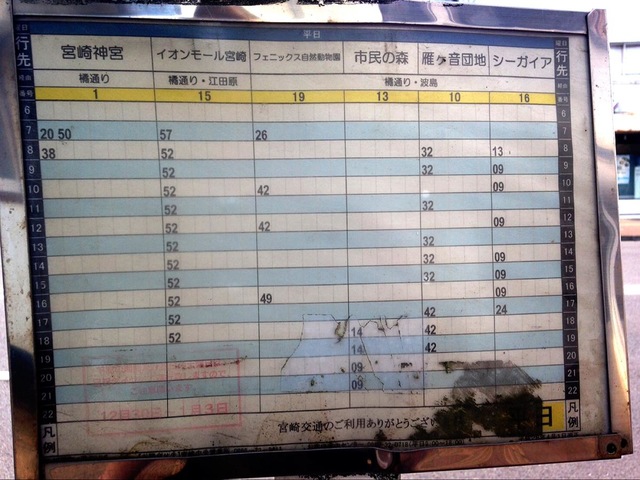 平日
曜日 行先 宮崎神宮 イオンモール宮崎 フェニックス自然動物園 市民の森 雁ヶ音団地 シーガイア 曜日 行先
経由 橘通り 橘通り・江田原 橘通り・波島 経由
番号 1 15 19 13 10 16 番号
6 6
7 20 50 57 26 7
8 38 52 32 13 8
9 52 32 09 9
10 52 42 09 10
11 52 32 11
12 52 42 09 12
13 52 32 13
14 52 32 09 14
15 52 32 09 15
16 52 49 09 16
17 52 42 24 17
18 52 14 42 18
19 14 42 19
20 09 20
21 09 21
22 22
12月3 1月3日
凡例 宮崎交通のご利用ありがとうござい 平日 凡例